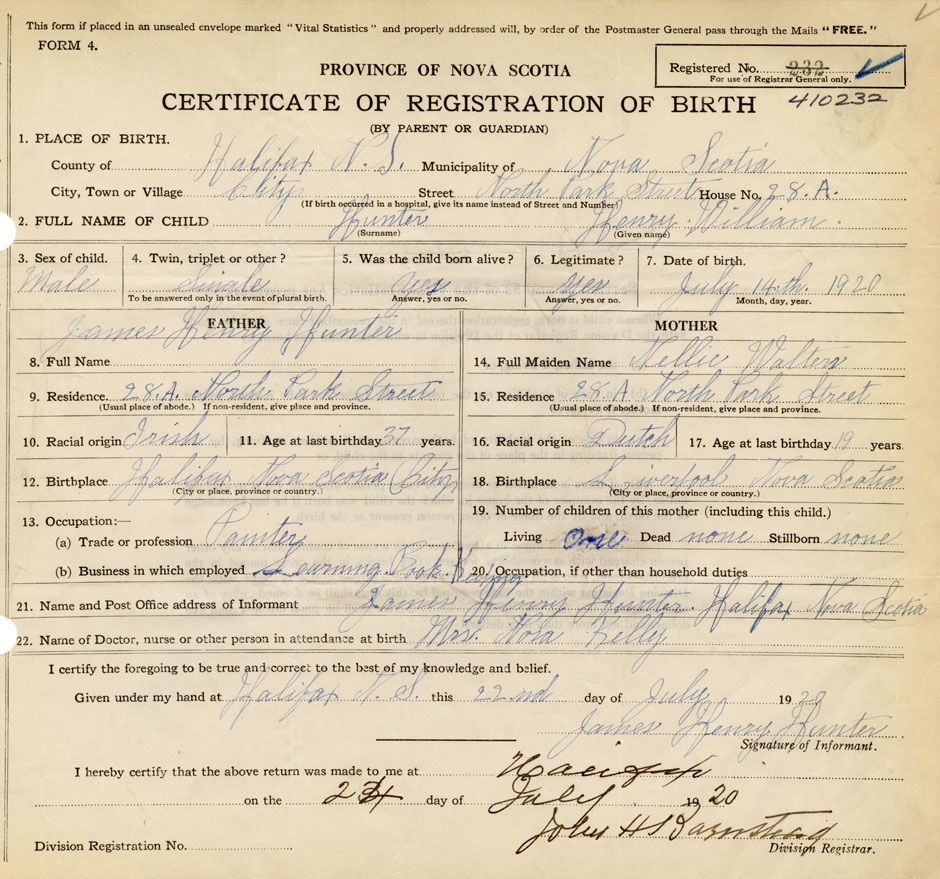 This form if placed in an unsealed envelope marked "Vital Statistics" and properly addressed will, by order of the Postmaster General pass through the Mails "FREE."
FORM 4.
PROVINCE OF NOVA SCOTIA
Registered No. 232
For use of Registrar General only.
CERTIFICATE OF REGISTRATION OF BIRTH 410232
(BY PARENT OR GUARDIAN)
1. PLACE OF BIRTH.
County of Halifax N.S. Municipality of Nova Scotia
City, Town or Village City Street North Park Street House No. 28.A.
(If birth occurred in a hospital, give its name instead of Street and Number)
2. FULL NAME OF CHILD Hunter Henry William.
(Surname) (Given name)
3. Sex of child. 4. Twin, triplet or other? 5. Was the child born alive? 6. Legitimate? 7. Date of birth.
Male Single yes yes July 14.th. 1920
To be answered only in the event of plural birth. Answer, yes or no. Answer, yes or no. Month, day, year.
FATHER MOTHER
James Henry Hunter
8. Full Name 14. Full Maiden Name Nellie Walters
9. Residence. 28.A. North Park Street 15. Residence 28.A North Park Street
(Usual place of abode.) If non-resident, give place and province. (Usual place of abode.) If non-resident, give place and province.
10. Racial origin Irish 11. Age at last birthday 37 years. 16. Racial origin Dutch 17. Age at last birthday 19 years.
12. Birthplace Halifax Nova Scotia (City) 18. Birthplace Liverpool Nova Scotia
(City or place, province or country.) (City or place, province or country.)
13. Occupation:— 19. Number of children of this mother (including this child.)
(a) Trade or profession Painter Living One Dead none Stillborn none
(b) Business in which employed Learning Book Keeping 20. Occupation, if other than household duties
21. Name and Post Office address of Informant James Henry Hunter. Halifax Nova Scotia
22. Name of Doctor, nurse or other person in attendance at birth Mrs. Nora Kelly
I certify the foregoing to be true and correct to the best of my knowledge and belief.
Given under my hand at Halifax N.S. this 22nd day of July 1920
James Henry Hunter
Signature of Informant.
I hereby certify that the above return was made to me at Halifax
on the day of July 1920
John H Barnstead
Division Registration No. Division Registrar.